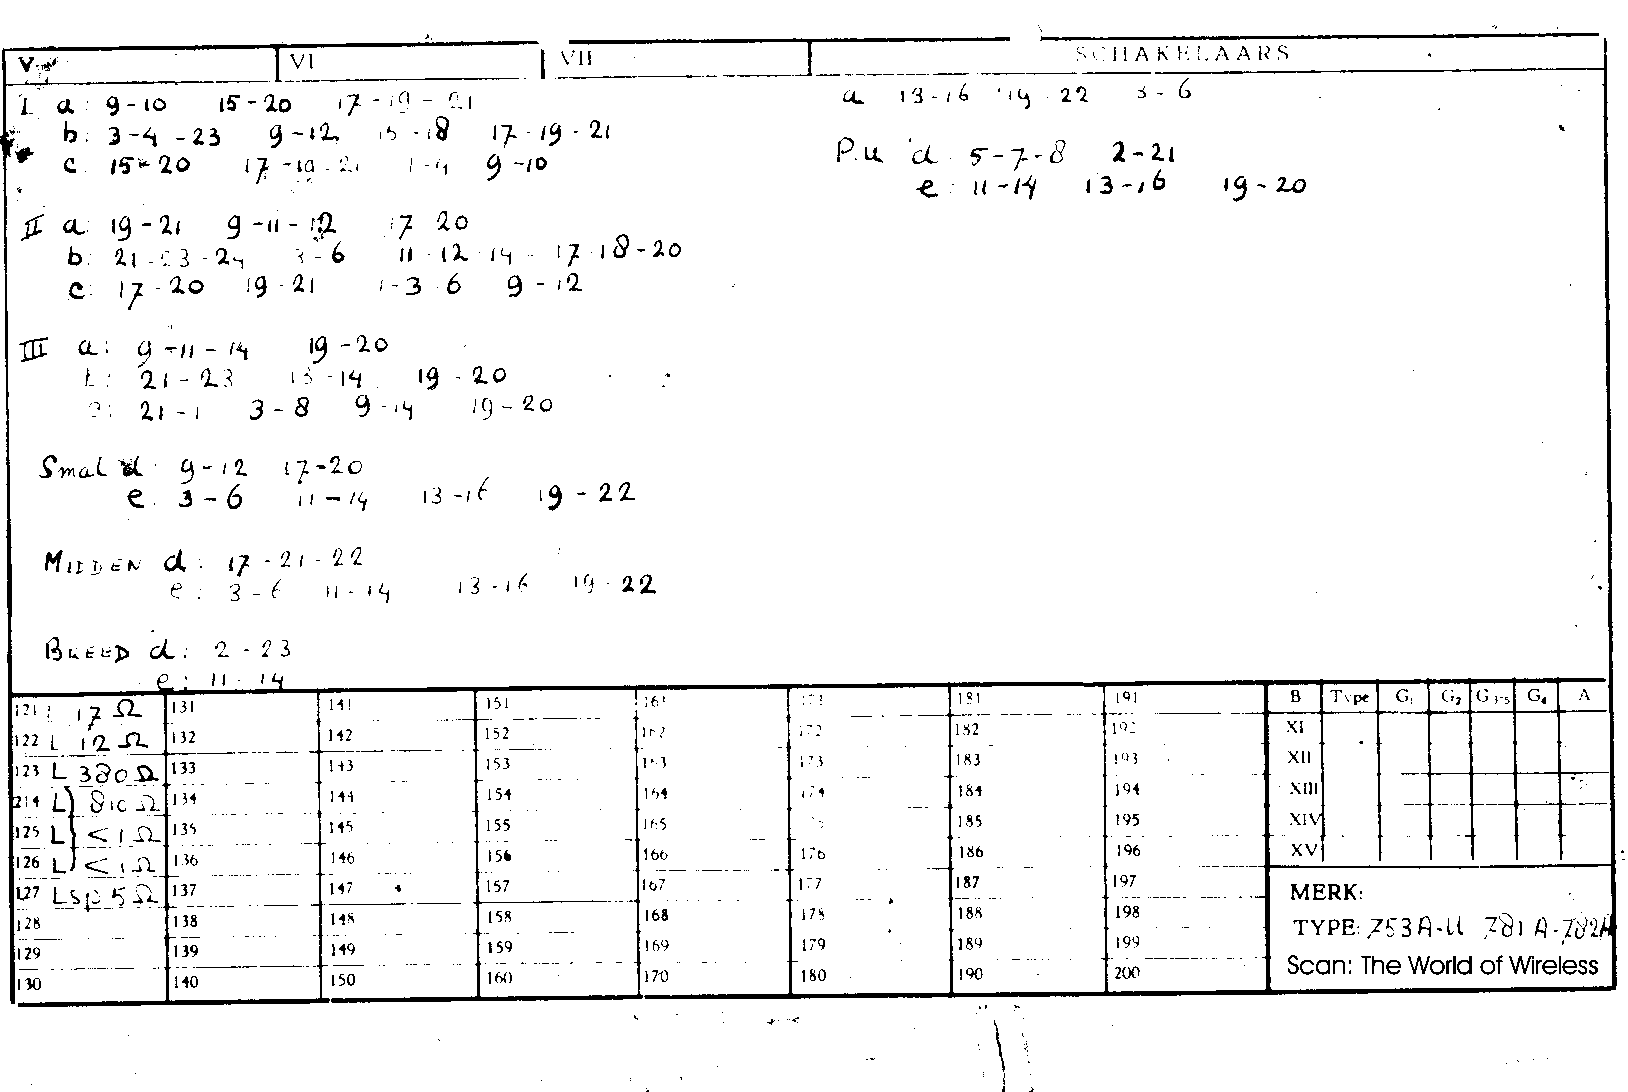 V VI VII SCHAKELAARS
I a: 9-10 15-20 17-19-21
b: 3-4-23 9-12 15-18 17-19-21
c: 15-20 17-19-21 1-4 9-10
II a: 19-21 9-11-12 17 20
b: 21-23-24 3-6 11-12-14 - 17-18-20
c: 17-20 19-21 1-3-6 9-12
III a: 9-11-14 19-20
b: 21-23 13-14 19-20
c: 21-1 3-8 9-14 19-20
Smal d: 9-12 17-20
e: 3-6 11-14 13-16 19-22
MIDDEN d: 17-21-22
e: 3-6 11-14 13-16 19-22
BREED d: 2-23
e: 11-14
a 13-16 19-22 3-6
P.u d: 5-7-8 2-21
e: 11-14 13-16 19-20
121 L 17 Ω 131 141 151 161 171 181 191
122 L 12 Ω 132 142 152 162 172 182 192
123 L 380 Ω 133 143 153 163 173 183 193
214 L 810 Ω 134 144 154 164 174 184 194
125 L < 1 Ω 135 145 155 165 185 195
126 L < 1 Ω 136 146 156 166 176 186 196
127 Lsp 5 Ω 137 147 157 167 177 187 197
128 138 148 158 168 178 188 198
129 139 149 159 169 179 189 199
130 140 150 160 170 180 190 200
B Type G1 G2 G3-5 G4 A
XI
XII
XIII
XIV
XV
MERK:
TYPE: 753A-U 781A-782A
Scan: The World of Wireless